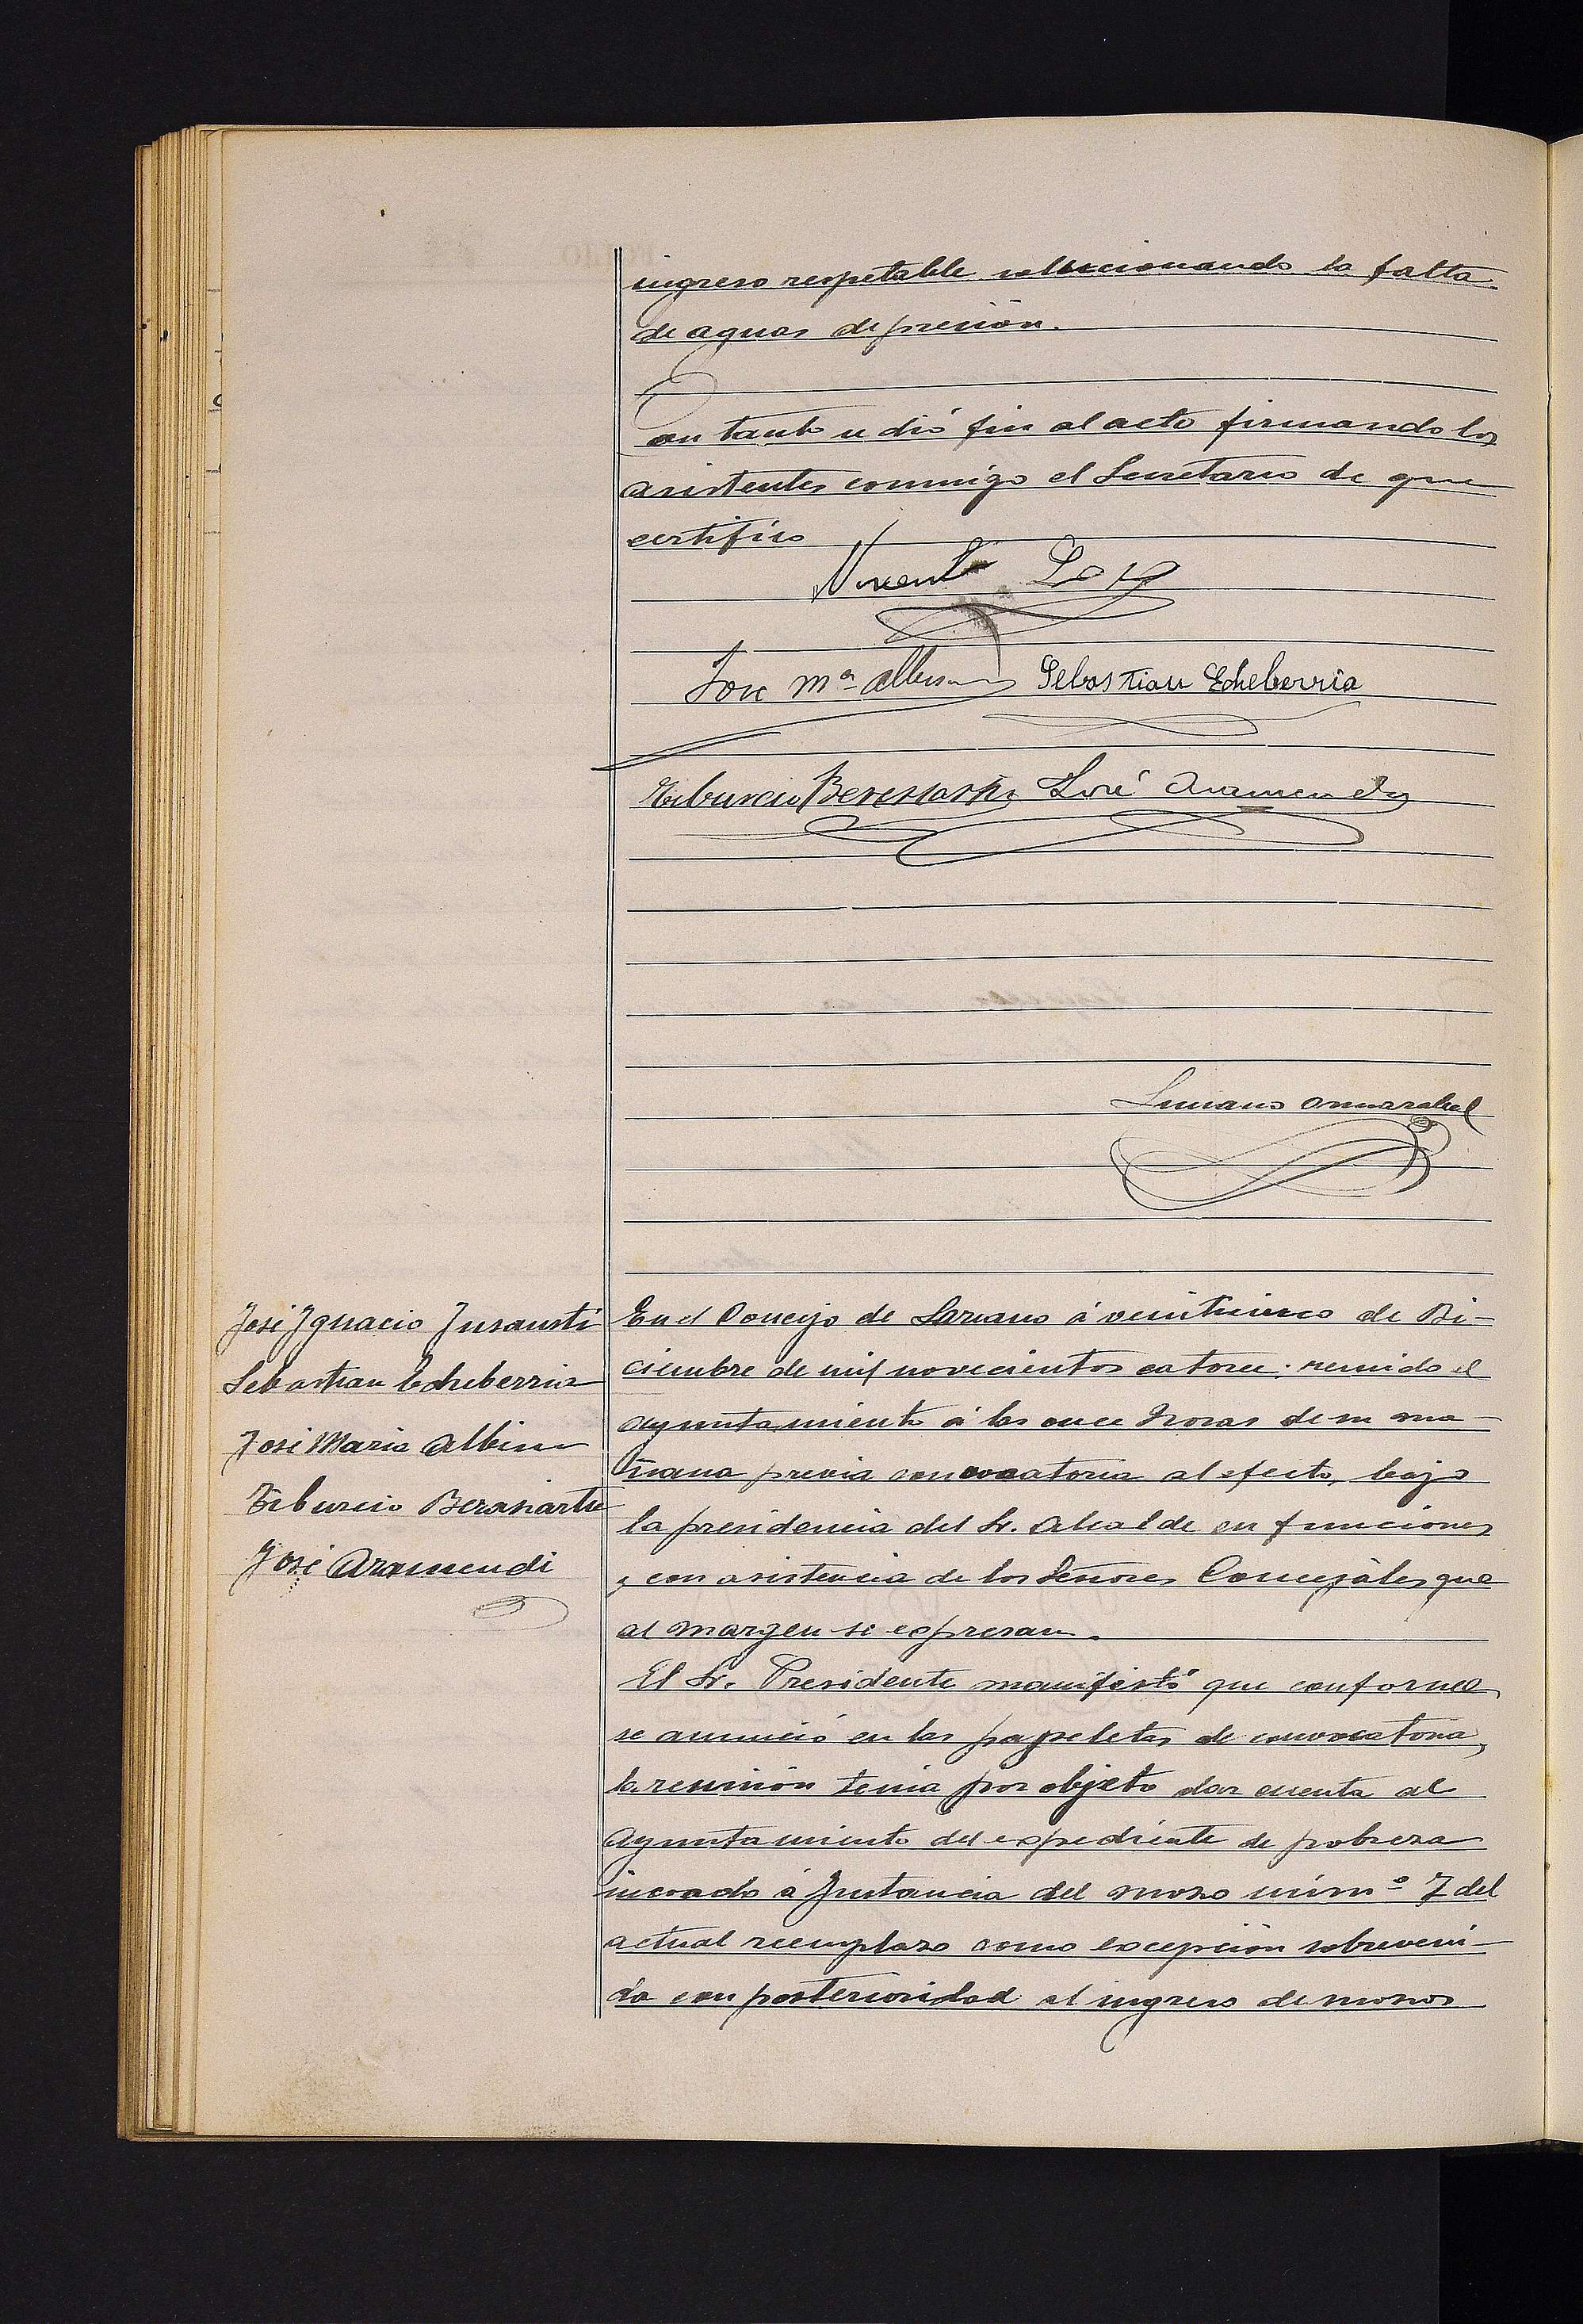 ingreso respetable solucionando la falta
de aguas de presión.
En tanto se dió fin al acto firmando los
asistentes conmigo el Secretario de que
certifico
Vicente Loy
Jose Mª Albisu Sebastian Echeberria
Tiburcio Berasiartu José Aramendi
Luciano
José Ignacio Insausti
Sebastian Echeberria
José Maria Albisu
Tiburcio Berasiartu
José Aramendi
En el Concejo de Lazcano á veinticinco de Di-
ciembre de mil novecientos catorce: reunido el
Ayuntamiento á las once horas de su ma-
ñana previa convocatoria al efecto, bajo
la presidencia del Sr. Alcalde en funciones
y con asistencia de los Señores Concejáles que
al margen se expresan.
El Sr. Presidente manifestó que conforme
se anunció en las papeletas de convocatoria,
la reunión tenia por objeto dar cuenta al
Ayuntamiento del expediente de pobreza
incoado á Instancia del mozo núm.º 7 del
actual reemplazo como excepción sobreveni-
da con posterioridad al ingreso de mozos